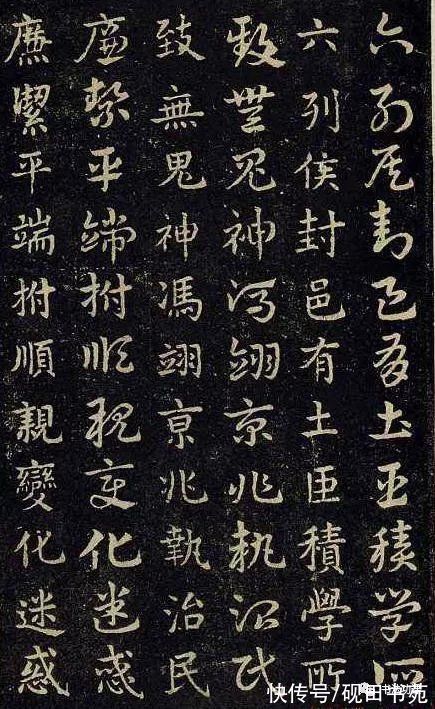 六列侯封邑有土臣積學所
六列侯封邑有土臣積學所
致無鬼神馮翊京兆執治民
致無鬼神馮翊京兆執治民
廉絜平端拊順親變化迷惑
廉絜平端拊順親變化迷惑
快传号/砚田书苑